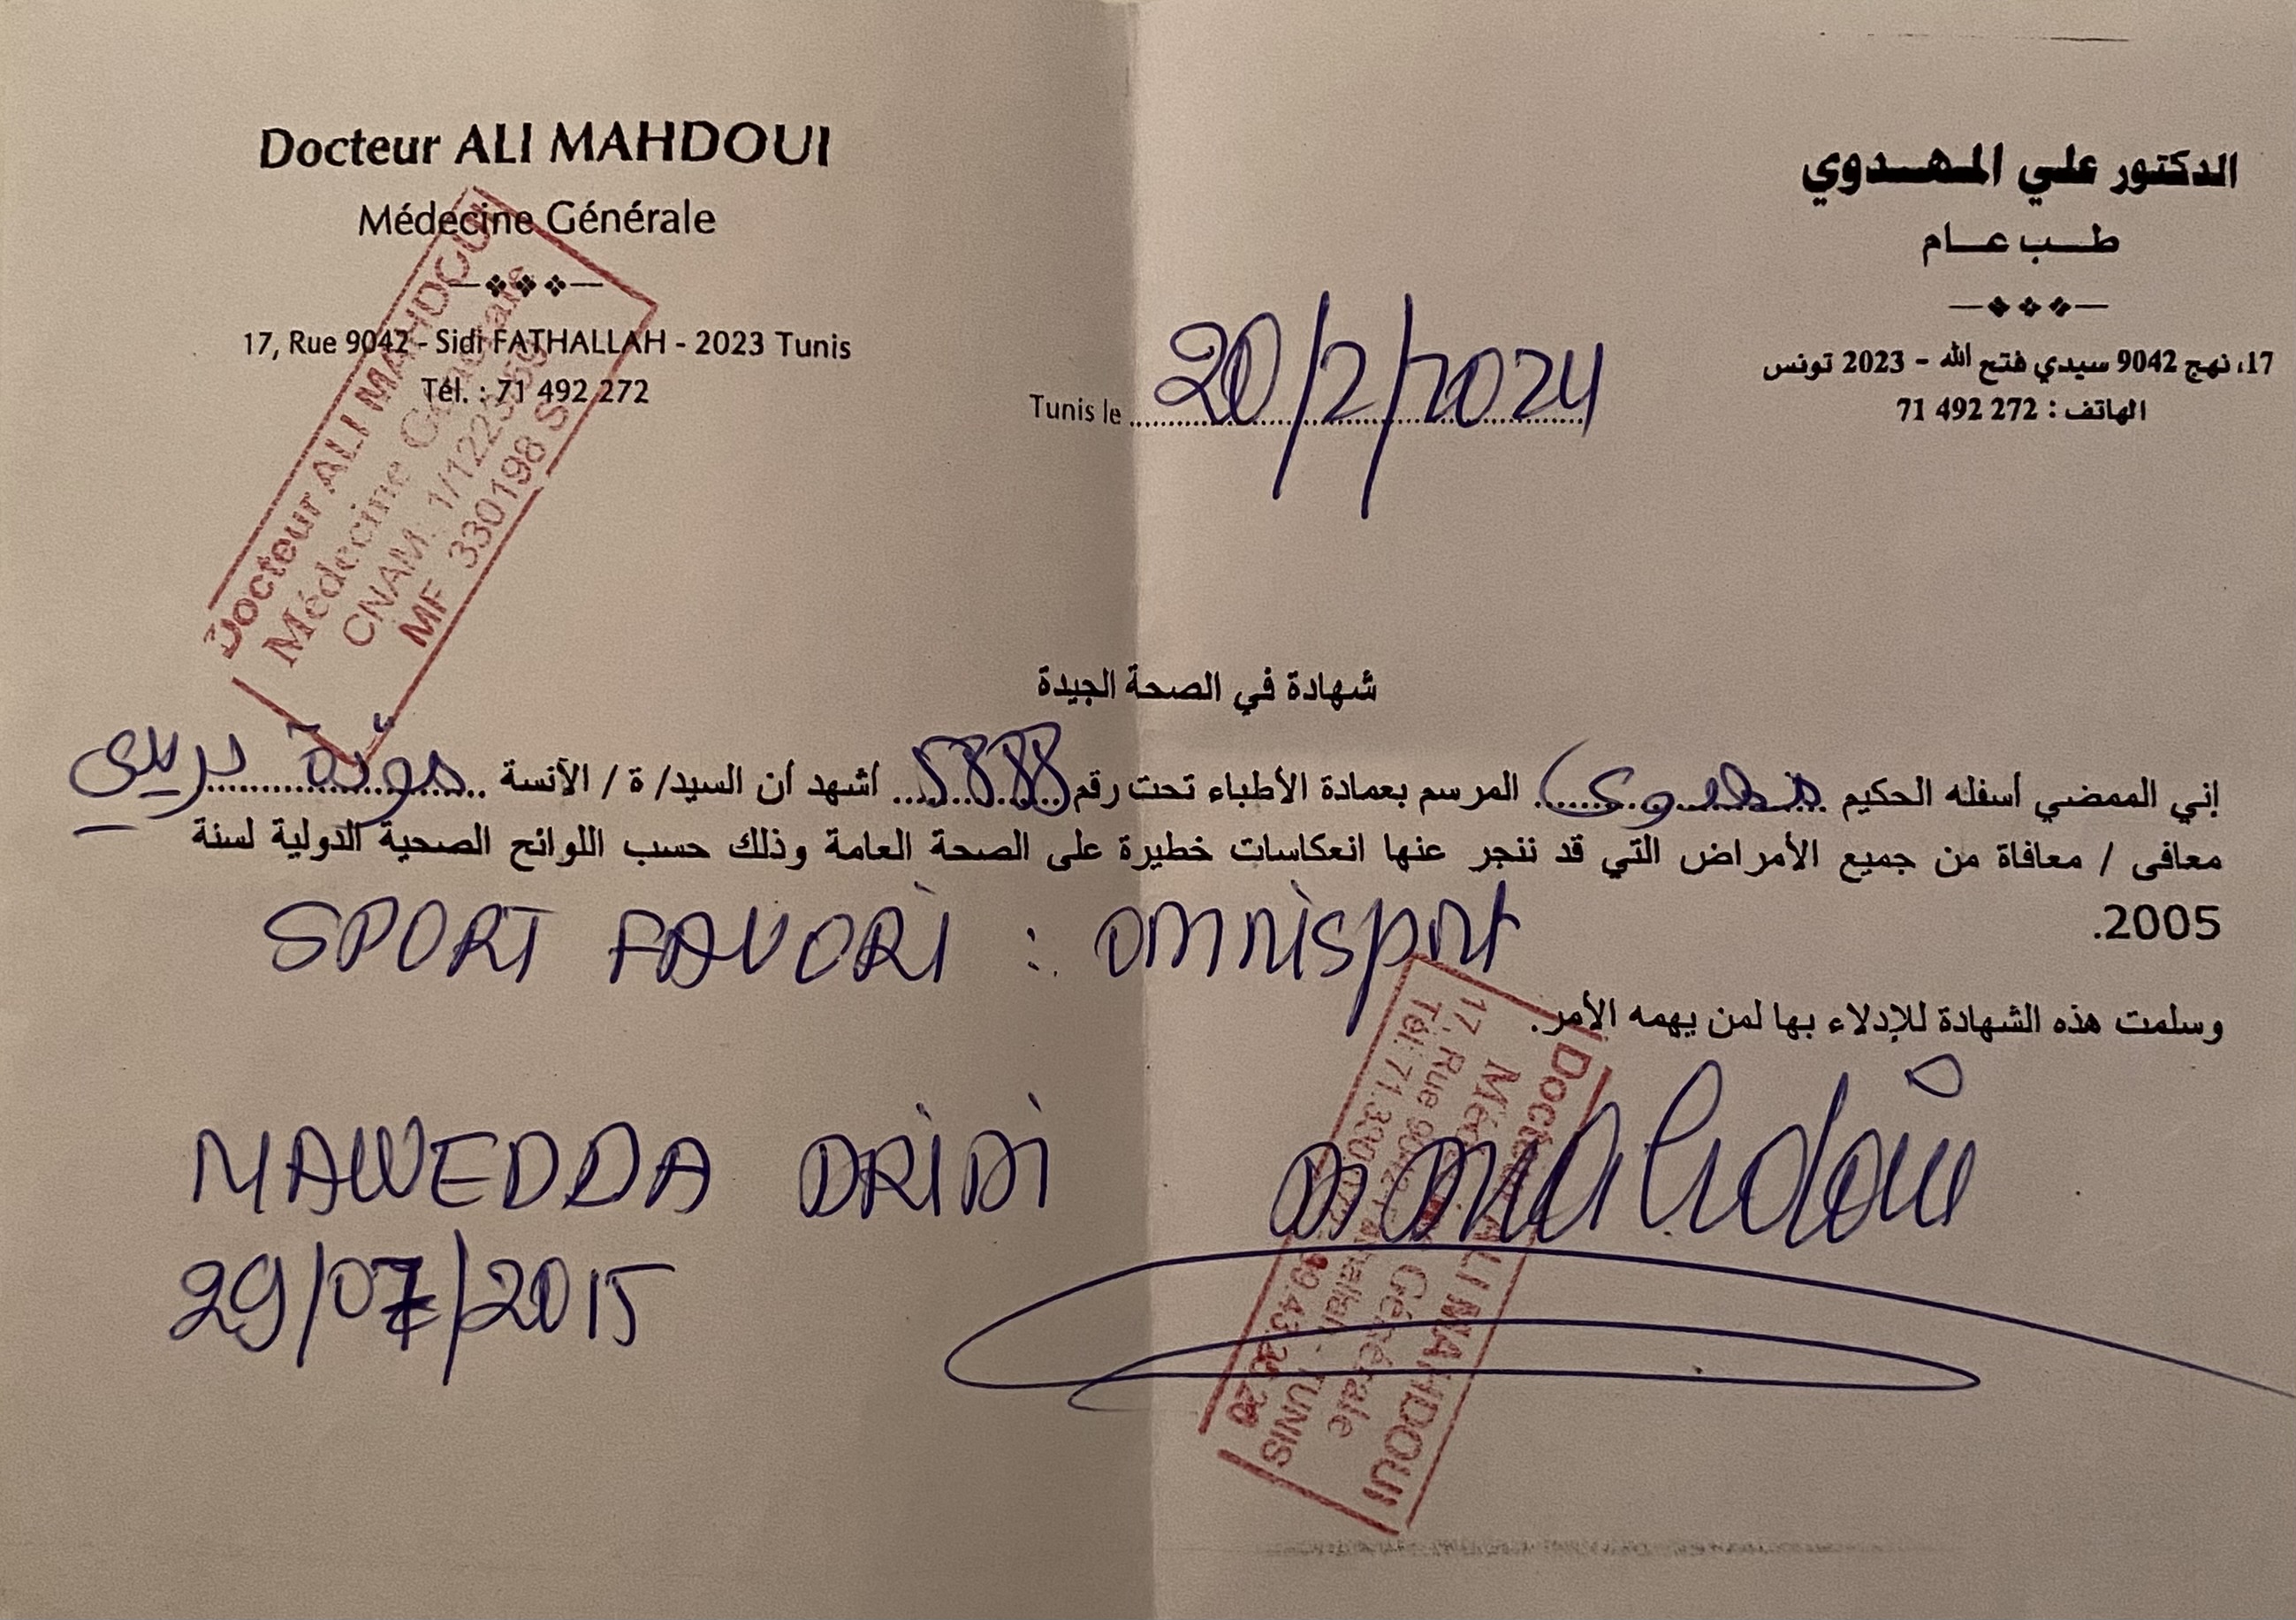 Docteur ALI MAHDOUI
Médecine Générale
17, Rue 9042 - Sidi FATHALLAH - 2023 Tunis
Tél. : 71 492 272
الدكتور علي المهدوي
طب عام
17، نهج 9042 سيدي فتح الله - 2023 تونس
الهاتف : 272 492 71
Tunis le 20/2/2024
Docteur ALI MAHDOUI
Médecine Générale
CNAM: 1/122
MF 330198 S
شهادة في الصحة الجيدة
إني الممضي أسفله الحكيم مهدوي المرسم بعمادة الأطباء تحت رقم 5888 أشهد أن السيد/ ة / الآنسة مودة دريدي
معافى / معافاة من جميع الأمراض التي قد تنجر عنها انعكاسات خطيرة على الصحة العامة وذلك حسب اللوائح الصحية الدولية لسنة
2005.
SPORT FAVORI : omnisport
وسلمت هذه الشهادة للإدلاء بها لمن يهمه الأمر.
MAWEDDA DRIDI
29/07/2015
Dr mahdoui
Docteur ALI MAHDOUI
Médecine Générale
17, Rue 9042 - Fathallah - TUNIS
Tél: 71.390.072